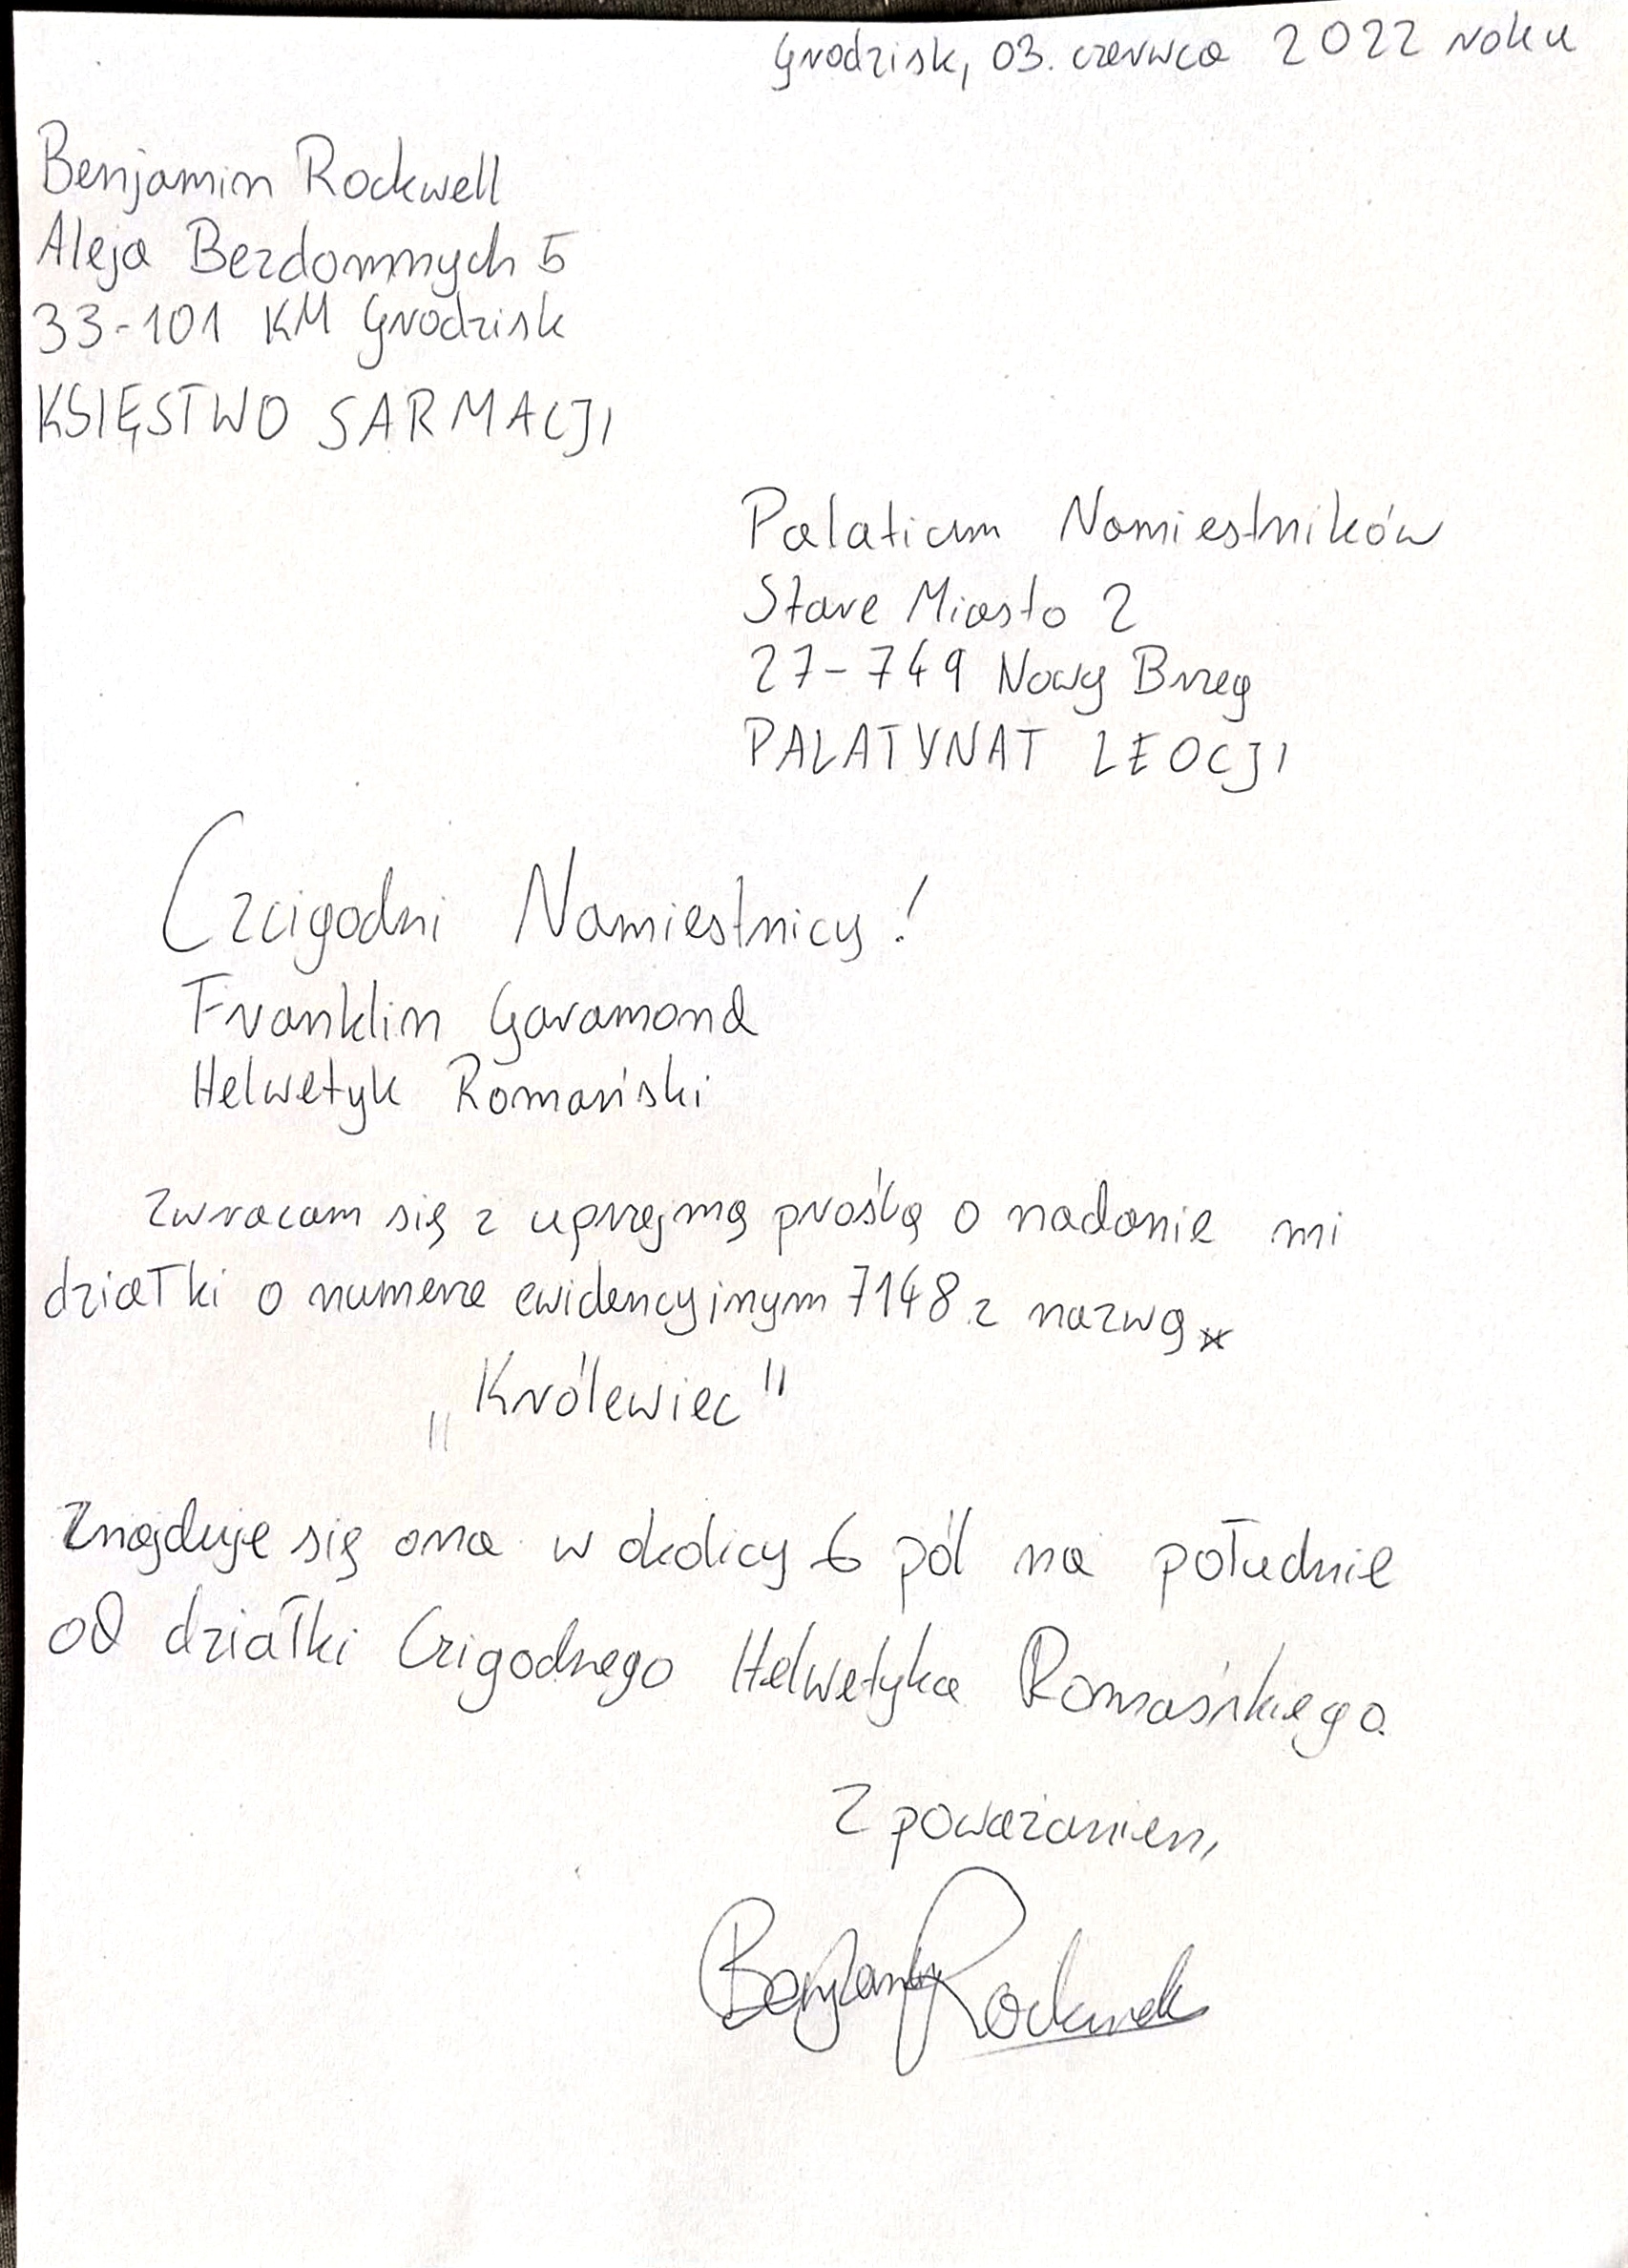 Grodzisk, 03. czerwca 2022 roku
Benjamin Rockwell
Aleja Bezdomnych 5
33-101 KM Grodzisk
KSIĘSTWO SARMACJI
Palatium Namiestników
Stare Miasto 2
27-749 Nowy Brzeg
PALATYNAT LEOCJI
Czcigodni Namiestnicy!
Franklin Garamond
Helwetyk Romański
Zwracam się z uprzejmą prośbą o nadanie mi
działki o numerze ewidencyjnym 7148 z nazwą
„Królewiec"
Znajduje się ona w okolicy 6 pól na południe
od działki Czcigodnego Helwetyka Romańskiego.
Z poważaniem,
Benjamin Rockwell